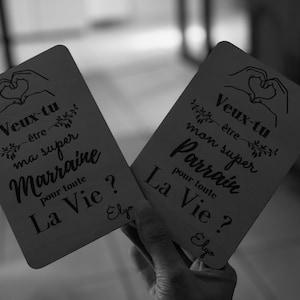 Veux-tu
être
ma super
Marraine
pour toute
La Vie ?
Elya
Veux-tu
être
mon super
Parrain
pour toute
La Vie ?
Elya